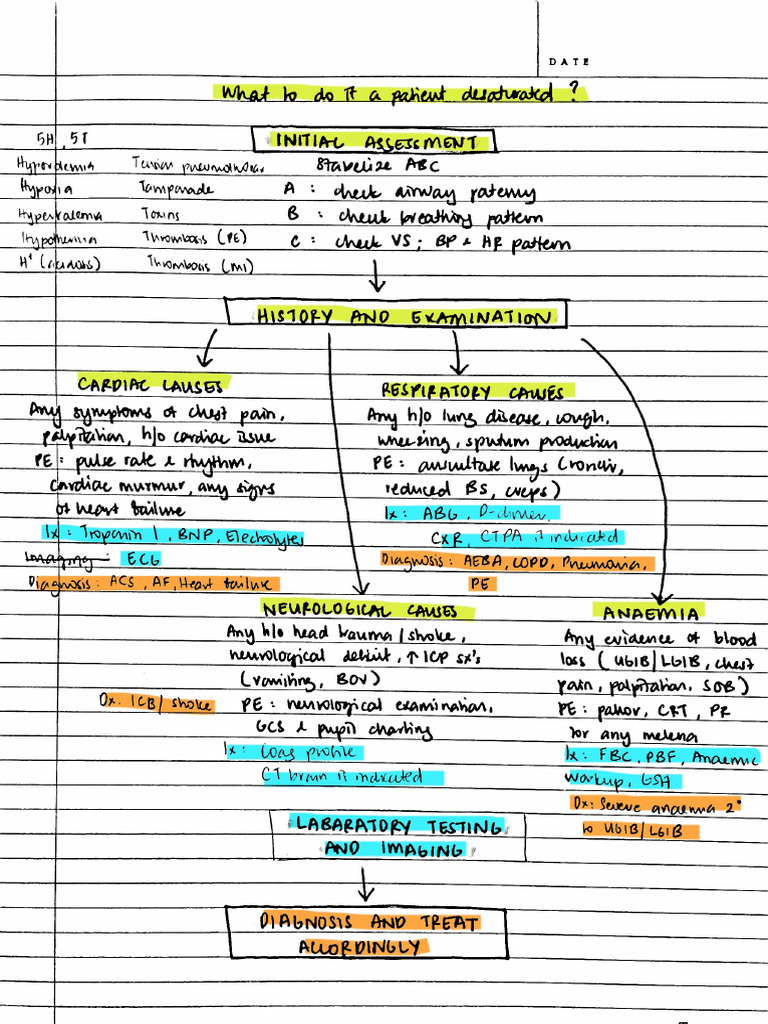 DATE
What to do if a patient desaturated?
5H, 5T
INITIAL ASSESSMENT
Hypovolemia Tension pneumothorax Stabelize ABC
Hypoxia Tamponade A : check airway patency
Hyperkalemia Toxins B : check breathing pattern
Hypothermia Thrombosis (PE) C : check VS; BP & HR pattern
H+ (acidosis) Thrombosis (MI)
HISTORY AND EXAMINATION
CARDIAC CAUSES
Any symptoms of chest pain,
palpitation, h/o cardiac issue
PE : pulse rate & rhythm,
cardiac murmur, any signs
of heart failure
Ix : Troponin I, BNP, Electrolytes
Imaging : ECG
Diagnosis : ACS, AF, Heart failure
RESPIRATORY CAUSES
Any h/o lung disease, cough,
wheezing, sputum production
PE : auscultate lungs (ronchi,
reduced BS, creps)
Ix : ABG, D-dimer,
CXR, CTPA if indicated
Diagnosis : AEBA, COPD, Pneumonia,
PE
NEUROLOGICAL CAUSES
Any h/o head trauma / stroke,
neurological deficit, ↑ ICP sx's
(vomiting, BOV)
Dx: ICB / stroke
PE : neurological examination,
GCS & pupil charting
Ix : Coag profile
CT brain if indicated
ANAEMIA
Any evidence of blood
loss (UGIB/LGIB, chest
pain, palpitation, SOB)
PE : pallor, CRT, PR
for any melena
Ix : FBC, PBF, Anaemic
workup, GSH
Dx : Severe anaemia 2°
to UGIB/LGIB
LABARATORY TESTING
AND IMAGING
DIAGNOSIS AND TREAT
ACCORDINGLY